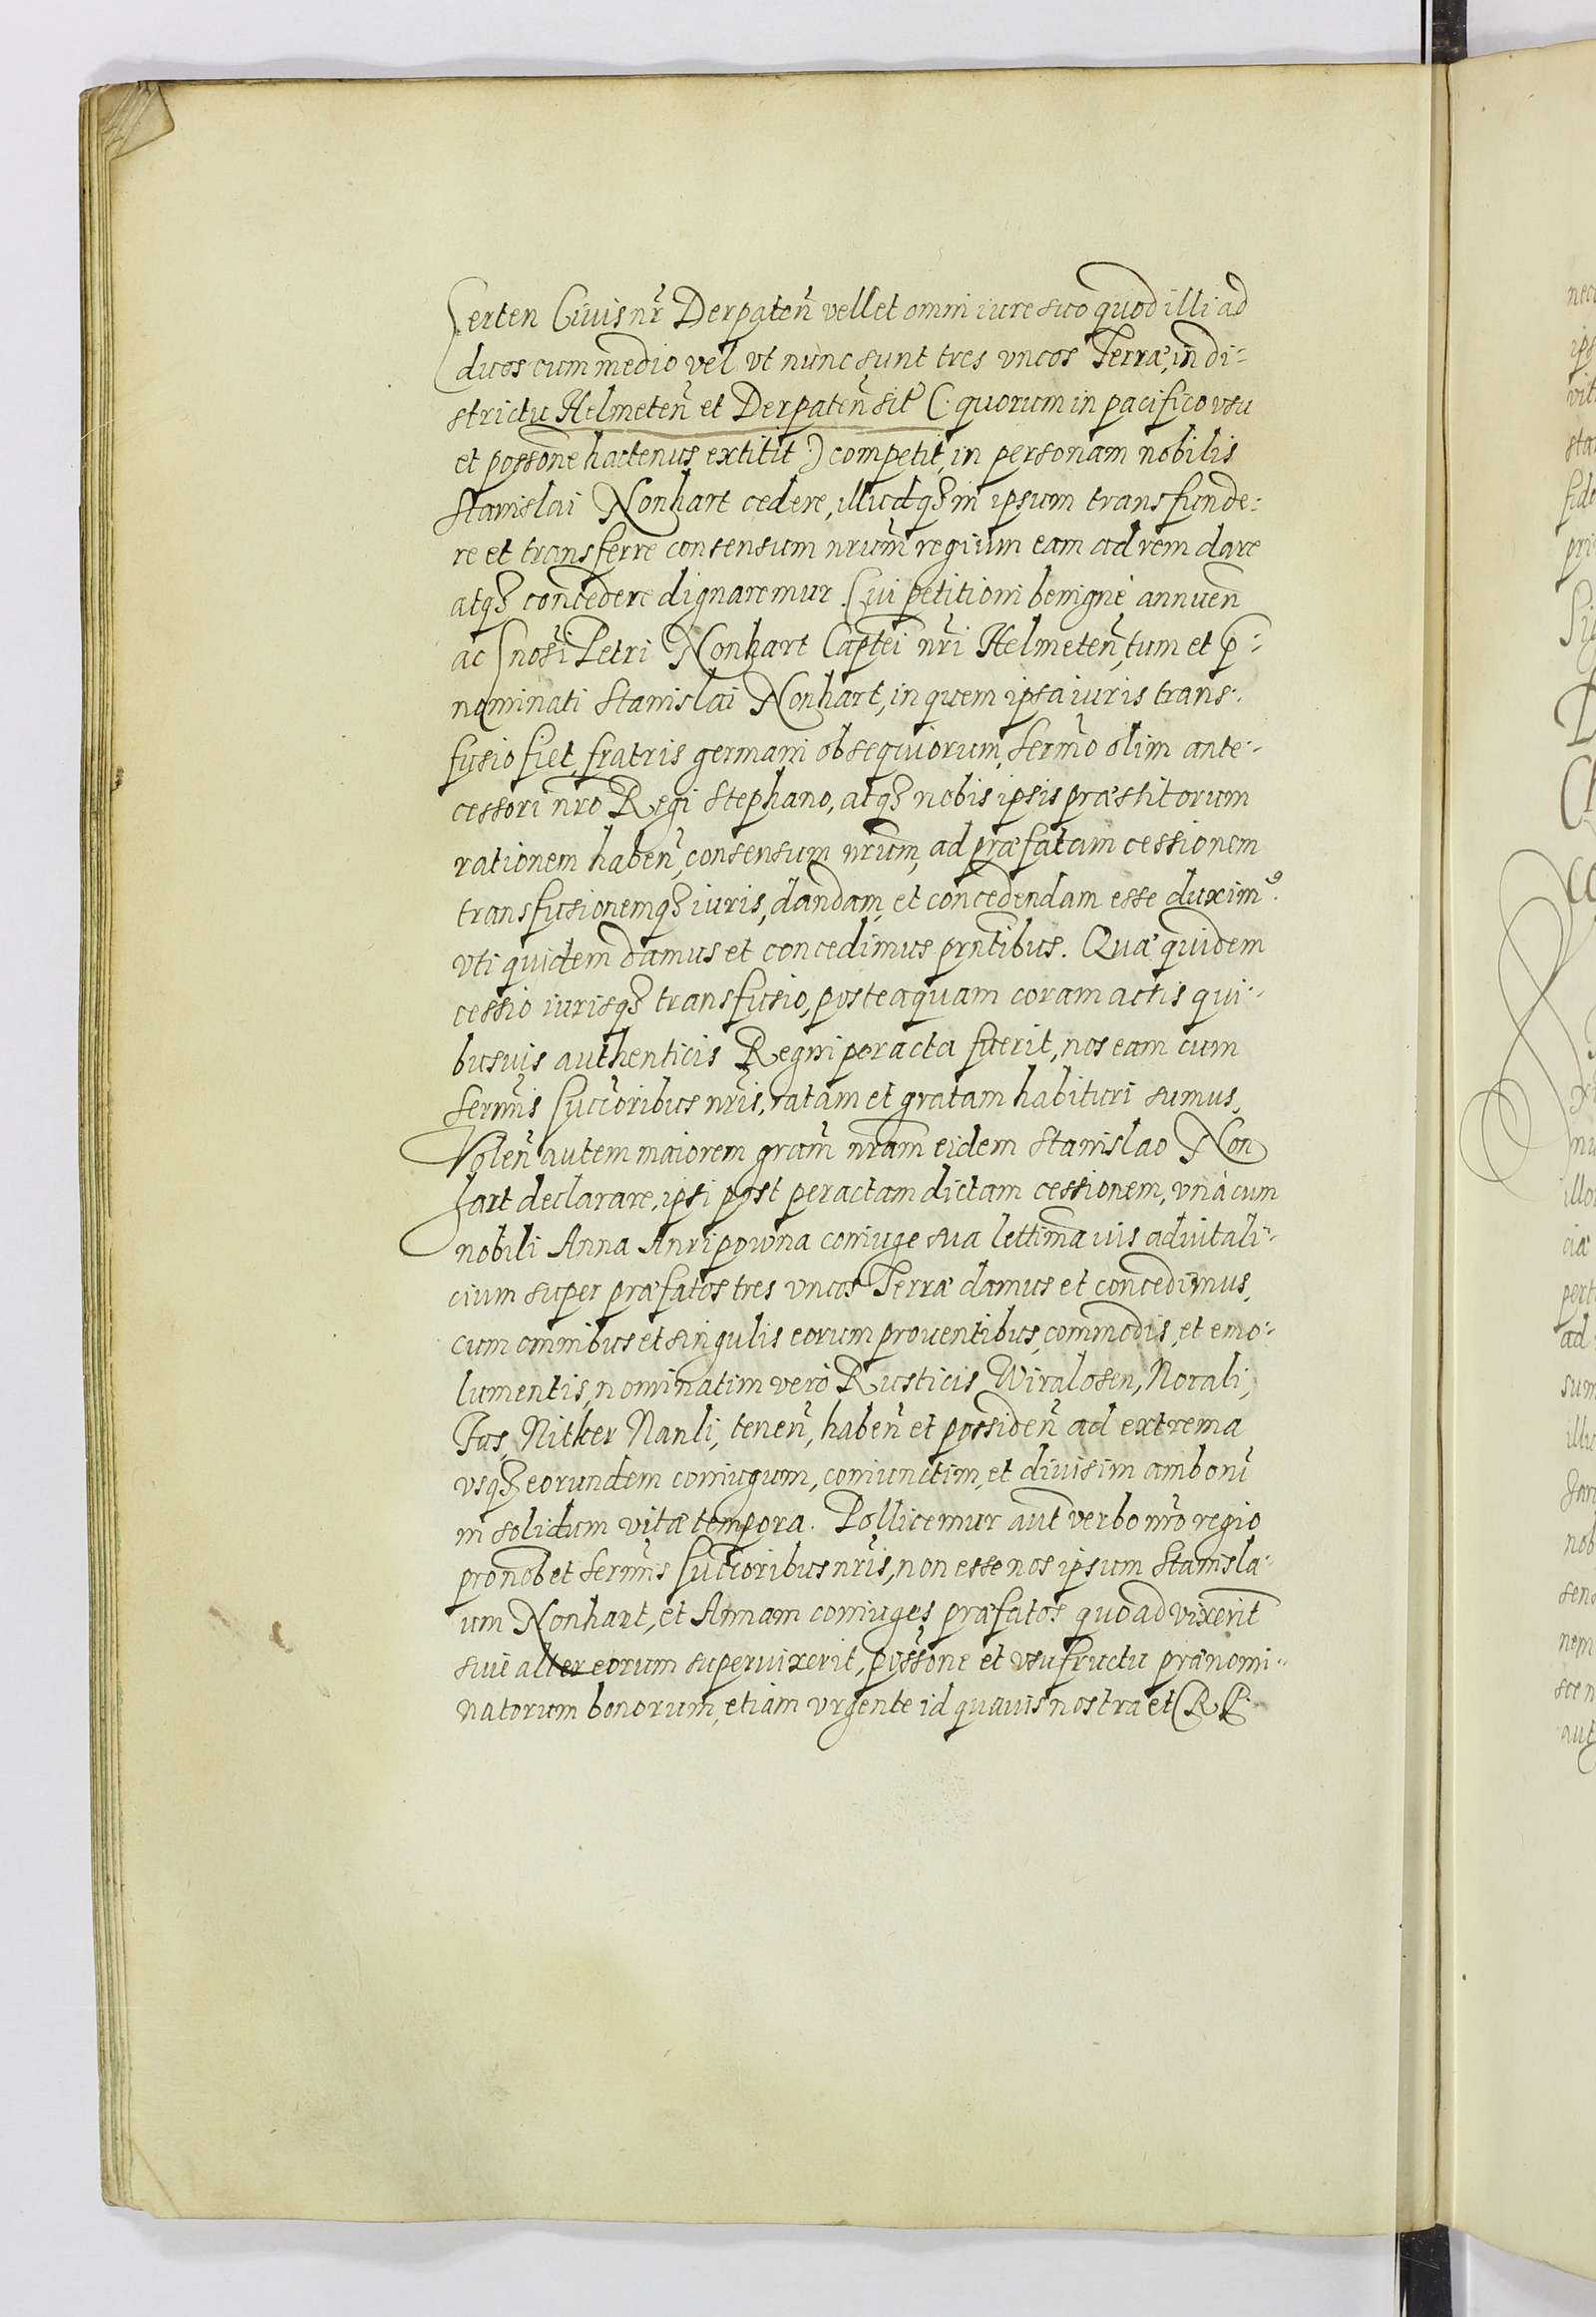 Certen Ciuis nr̃ Derpateñ vellet omni iure suo quod illi ad
duos cum medio vel vt nunc sunt tres vncos Terræ, in di-
strictu Helmeteñ et Derpateñ sit̃ (: quorum in pacifico vsu
et possone hactenus extitit :) competit, in personam nobilis
Stanislai Nonhart cedere, illudq3 in ipsum transfunde-
re et transferre consensum nrum̃ regium eam ad rem dare
atq3 concedere dignaremur. Cui petitioni benignè annueñ
ac gnosi Petri Nonhart Captei nr̃i Helmeteñ, tum et p̃-
nominati Stanislai Nonhart, in quem ipsa iuris trans-
fusio fiet, fratris germani obsequiorum, Sermo olim ante-
cessori nr̃o Regi Stephano, atq3 nobis ipsis præstitorum
rationem habeñ, consensum nrum̃, ad præfatam cessionem
transfusionemq3 iuris, dandam, et concedendam esse duxim9.
vti quidem damus et concedimus prñtibus. Quæ quidem
cessio iurisq3 transfusio, posteaquam coram actis qui-
busuis authenticis Regni peracta fuerit, nos eam cum
Sermis succoribus nr̃is, ratam et gratam habituri sumus,
Voleñ autem maiorem gram̃ nram̃ eidem Stanislao Non
hart declarare, ipsi post peractam dictam cessionem, vnà cum
nobili Anna Anripowna coniuge sua lettima ius aduitali-
cium super præfatos tres vncos Terræ damus et concedimus,
cum omnibus et singulis eorum prouentibus, commodis, et emo-
lumentis, nominatim verò Rusticis Wiralosen, Norali,
Jas, Nitker Nanli, teneñ, habeñ et possideñ ad extrema
vsq3 eorundem coniugum, coniunctim, et diuisim ambonu
in solidum vitæ tempora. Pollicemur aut̃ verbo nr̃o regio
pro nob et Sermis succoribus nr̃is, non esse nos ipsum Stanisla-
um Nonhart, et Annam coniuges præfatos quoad vixerint
siue alter eorum superuixerit, possone et vsufructu prænomi-
natorum bonorum, etiam vrgente id quauis nostra et R P